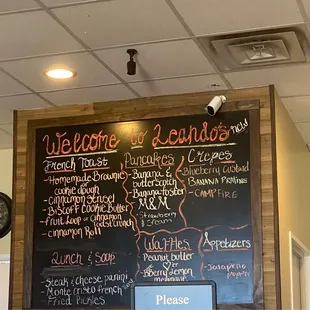 Welcome to Leandos
New
French Toast
-Homemade Brownie
cookie dough
-Cinnamon
-Biscoff Cookie Butter
-Fruit Loop or Cinnamon
toast crunch
-Cinnamon Roll
Pancakes
-Banana &
butterscotch
-Banana foster
-M&M
-Strawberry
& Cream
Crepes
-Blueberry Custard
-Banana
-Campfire
Waffles
-Peanut butter
or
-Berry Lemon
Appetizers
-Jalapeño
popper
Lunch & Soup:
-Steak & cheese panini
-Monte cristo french
-Fried Pickles
Please